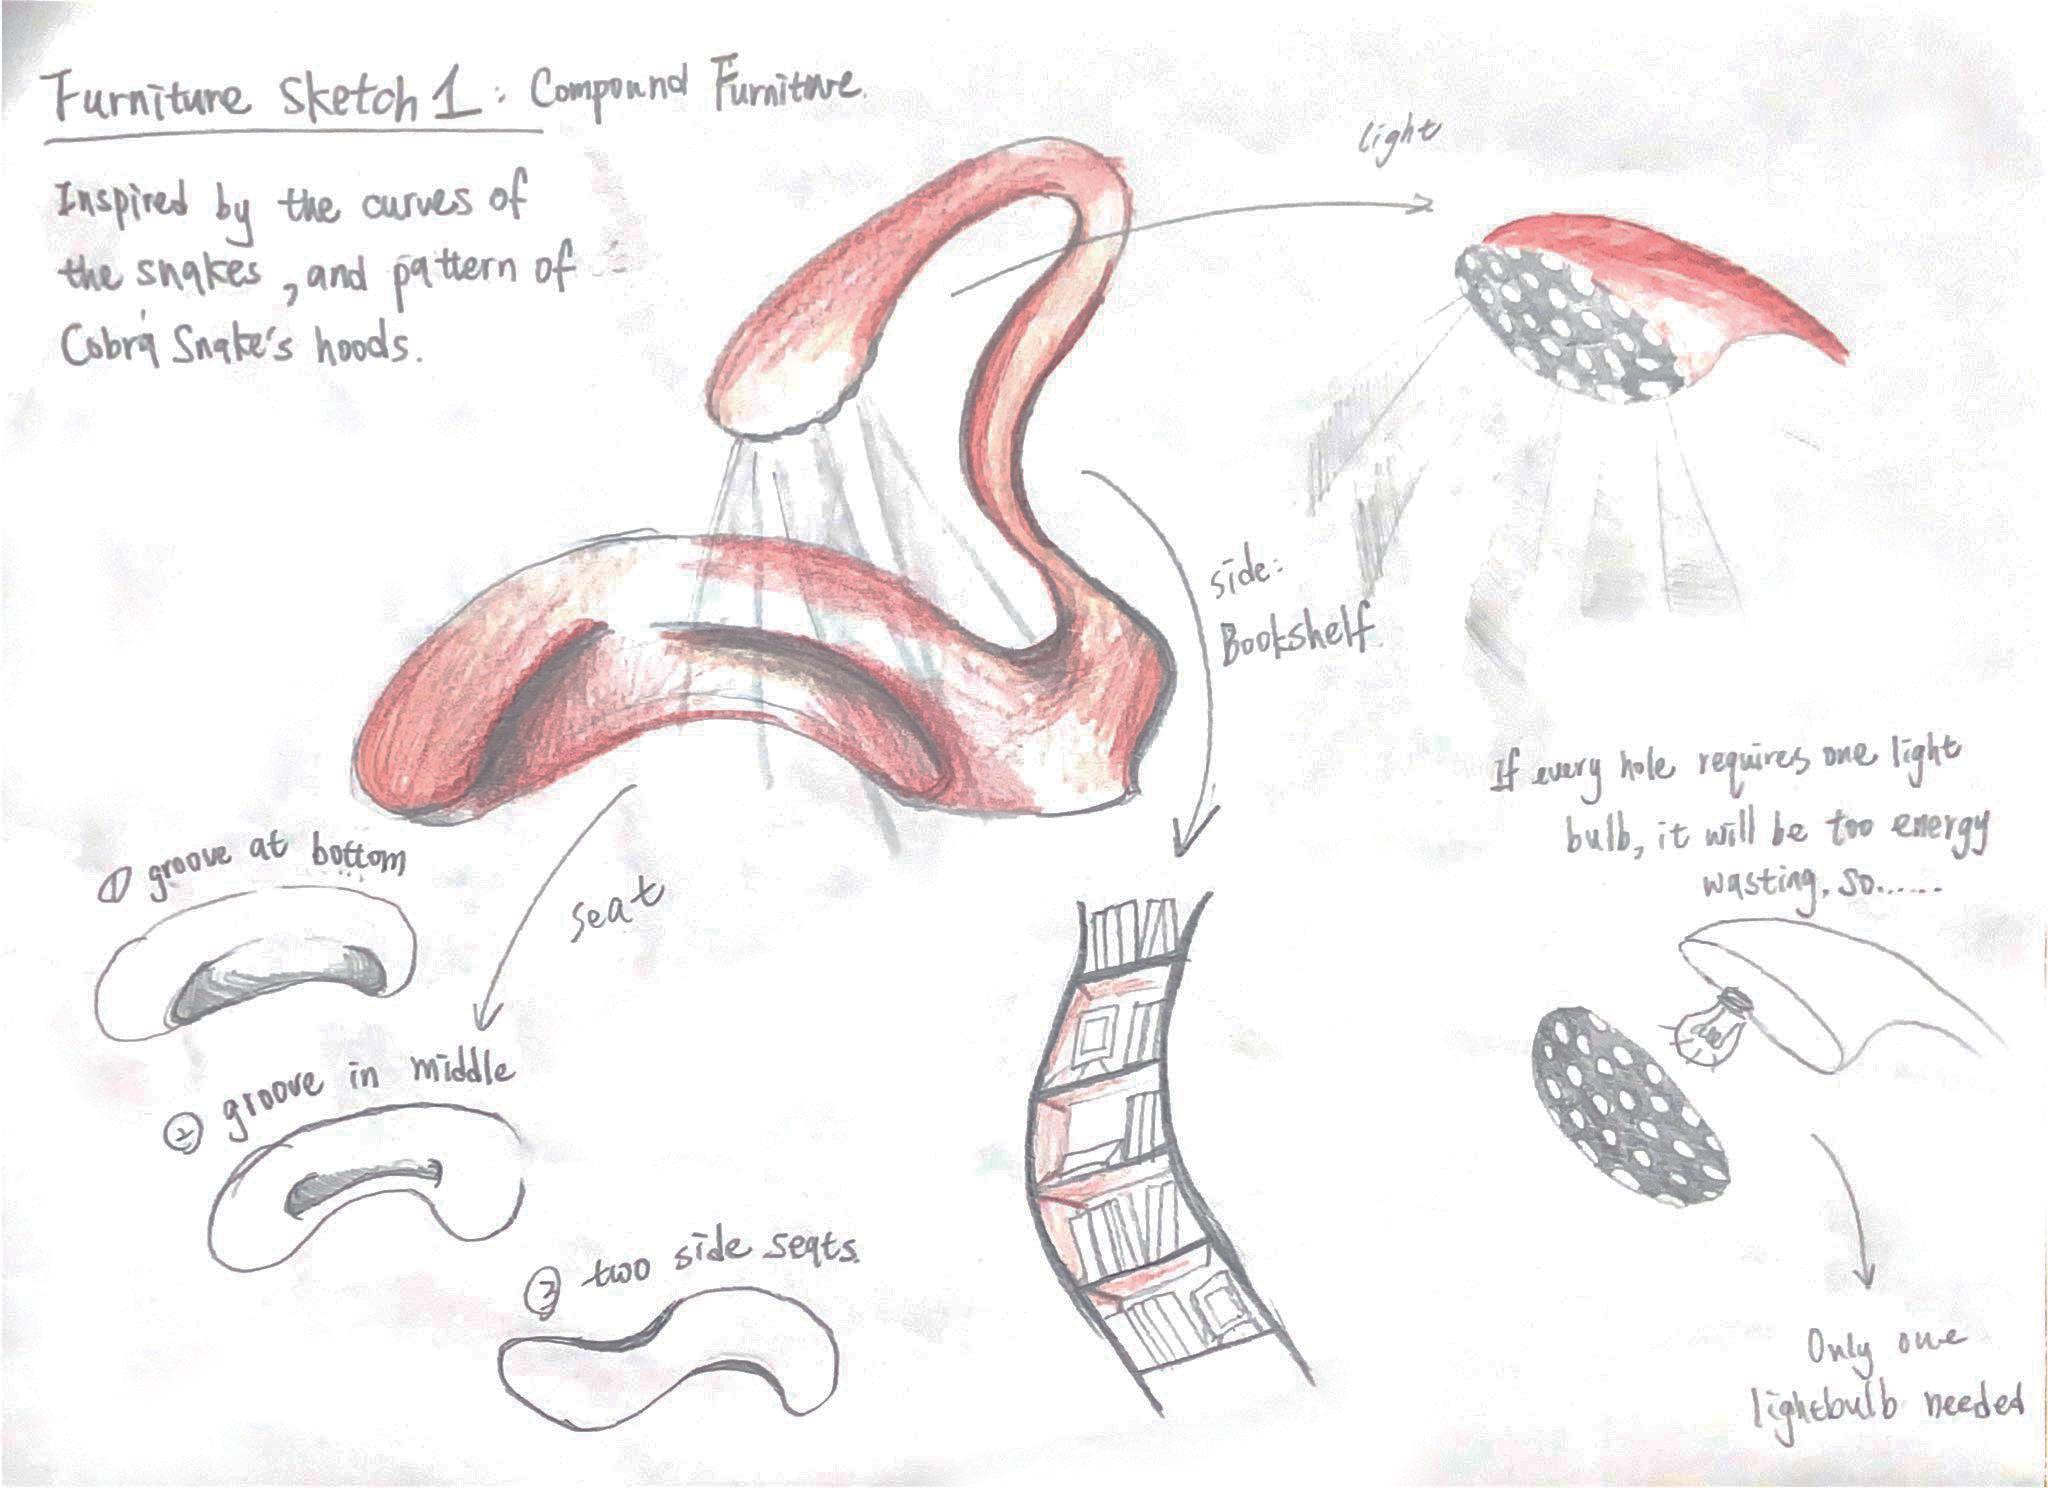 Furniture Sketch 1: Compound Furniture.
Inspired by the curves of
the snakes, and pattern of
Cobra Snake's hoods.
light
side:
Bookshelf
If every hole requires one light
bulb, it will be too energy
wasting, so......
① groove at bottom
seat
② groove in middle
③ two side seats.
Only one
lightbulb needed